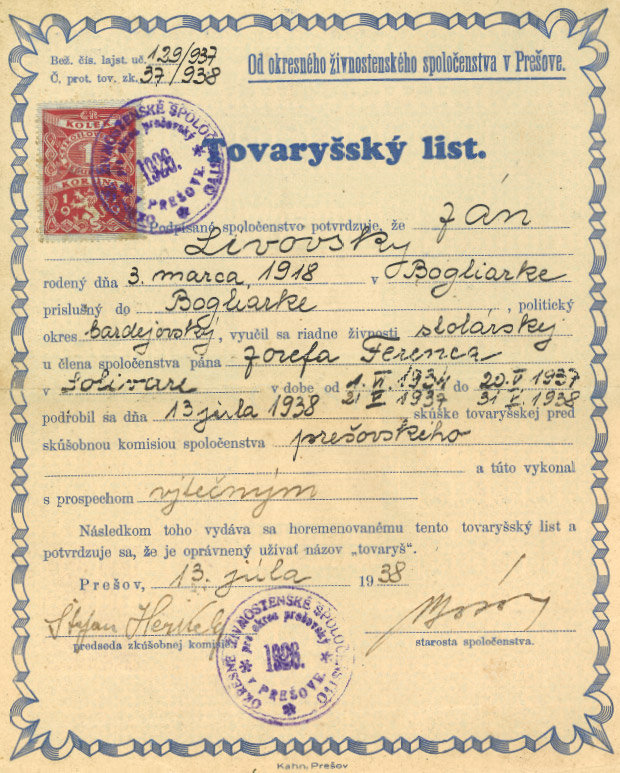 Bež. čís. lajst. uč. 129/937
Č. prot. tov. zk. 37/938
Od okresného živnostenského spoločenstva v Prešove.
Tovaryšský list.
ČR
KOLEK
KORUNA
OKRESNÉ ŽIVNOSTENSKÉ SPOLOČENSTVO
pre okres prešovský
1926.
V PREŠOVE
Podpísané spoločenstvo potvrdzuje, že Ján
Livovsky
rodený dňa 3. marca 1918 v Bogliarke
príslušný do Bogliarke, politický
okres bardejovský, vyučil sa riadne živnosti stolársky
u člena spoločenstva pána Jozefa Ferenca
v Solivare v dobe od 1. VI 1934 do 20. V 1937
21 V 1937 31 V. 1938
podrobil sa dňa 13 júla 1938 skúške tovaryšskej pred
skúšobnou komisiou spoločenstva prešovského
a túto vykonal
s prospechom výtečným
Následkom toho vydáva sa horemenovanému tento tovaryšský list a
potvrdzuje sa, že je oprávnený užívať názov „tovaryš".
Prešov, 13. júla 1938
Štefan
predseda zkúšobnej komisie
starosta spoločenstva.
OKRESNÉ ŽIVNOSTENSKÉ SPOLOČENSTVO
pre okres prešovský
1926.
V PREŠOVE
Kahn, Prešov